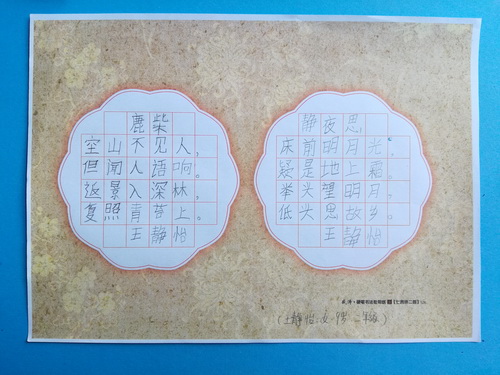 鹿柴
空山不见人，
但闻人语响。
返景入深林，
复照青苔上。
王静怡
静夜思
床前明月光，
疑是地上霜。
举头望明月，
低头思故乡。
王静怡
(王静怡 女 9岁 二年级)